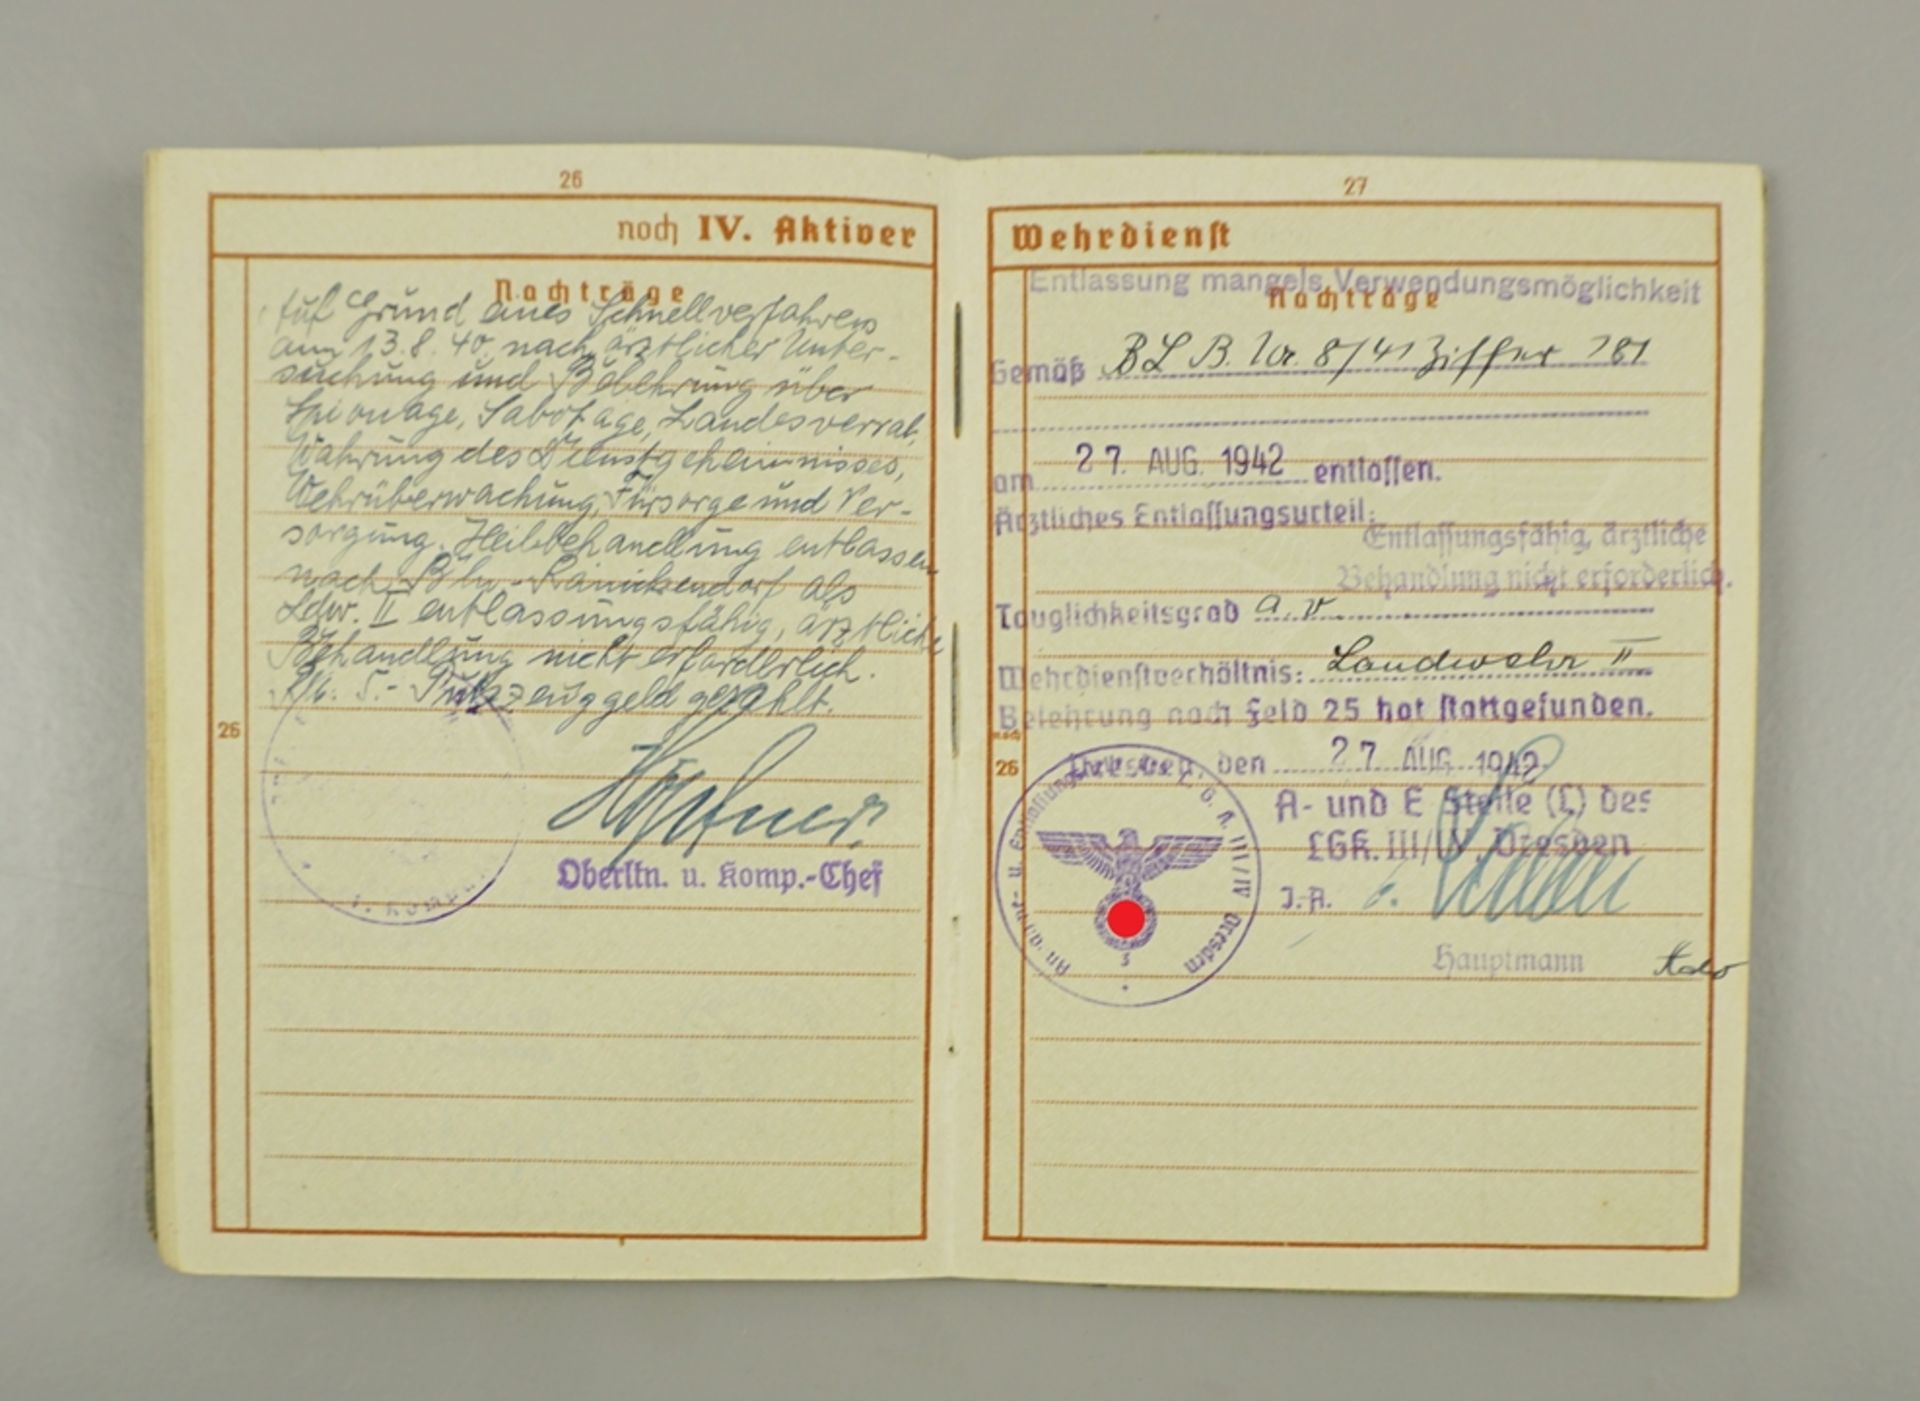 26
noch IV. Aktiver
Nachträge
Auf Grund eines Schnellverfahrens
am 13.8.40. nach ärztlicher Unter-
suchung und Belehrung über
Spionage, Sabotage, Landesverrat,
Wahrung des Dienstgeheimnisses,
Wehrüberwachung, Fürsorge und Ver-
sorgung. Heilbehandlung entlassen
nach Bln.-Reinickendorf als
Ldw. II entlassungsfähig, ärztliche
Behandlung nicht erforderlich.
RM. 5.- Putzzeuggeld gezahlt.
26
Oberltn. u. Komp.-Chef
27
Wehrdienst
Entlassung mangels Verwendungsmöglichkeit
Nachträge
Gemäß BLB. Nr. 8/41 Ziffer 181
am 27. AUG. 1942 entlassen.
Ärztliches Entlassungsurteil:
Entlassungsfähig, ärztliche
Behandlung nicht erforderlich.
Tauglichkeitsgrad a.v.
Wehrdienstverhältnis: Landwehr II
Belehrung nach Feld 25 hat stattgefunden.
noch
26
Dresden, den 27. AUG. 1942
A- und E Stelle (L) des
LGK. III/IV, Dresden
J.A.
Hauptmann